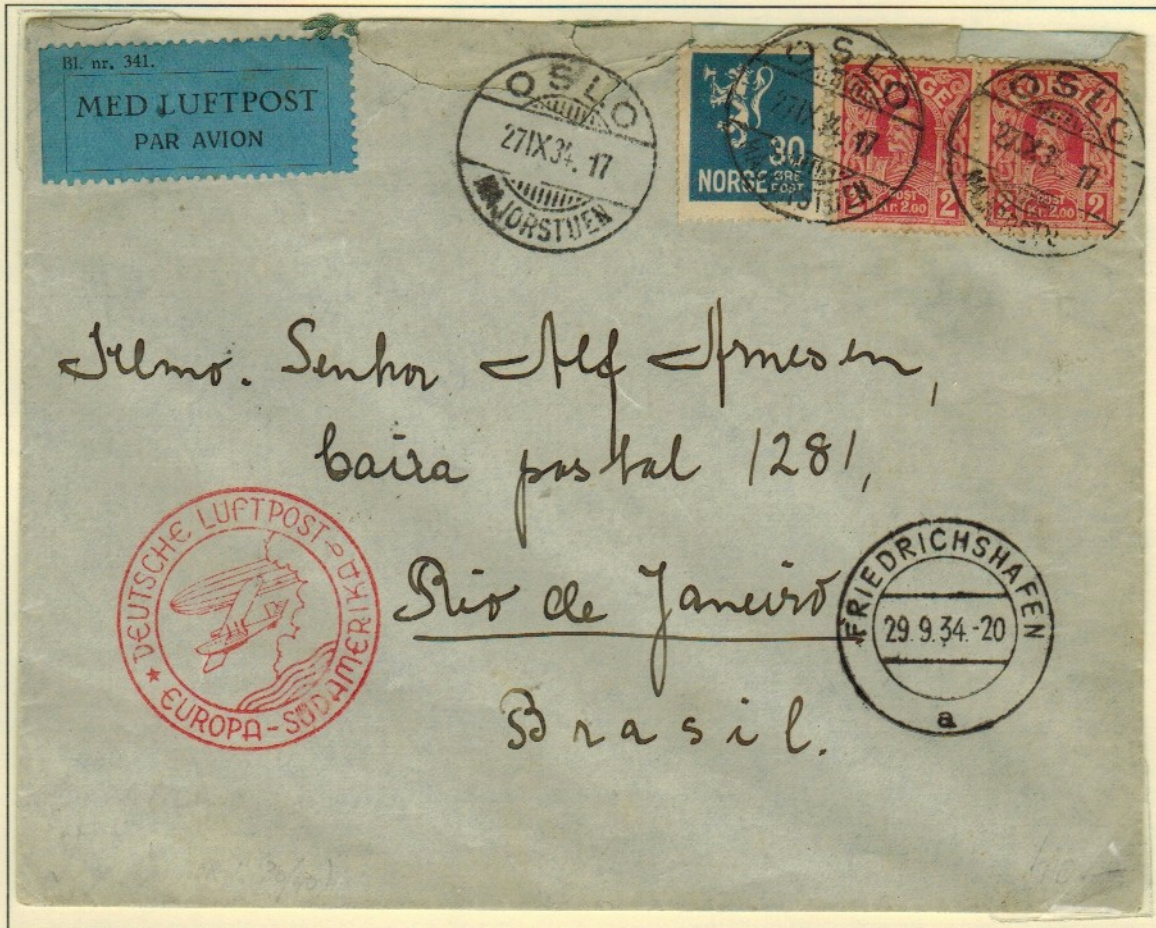 Bl. nr. 341.
MED LUFTPOST
PAR AVION
OSLO
27 IX 34. 17
MAJORSTUEN
30
ØRE
NORGE POST
OSLO
27 IX 34 17
NORGE
POST
2 KR. 2.00 2
OSLO
27 IX 34 17
NORGE
POST
KR. 2.00 2
Illmo. Senhor Alf Arnesen,
Caixa postal 1281,
Rio de Janeiro
Brasil.
DEUTSCHE LUFTPOST
EUROPA-SÜDAMERIKA
FRIEDRICHSHAFEN
29.9.34.-20
a